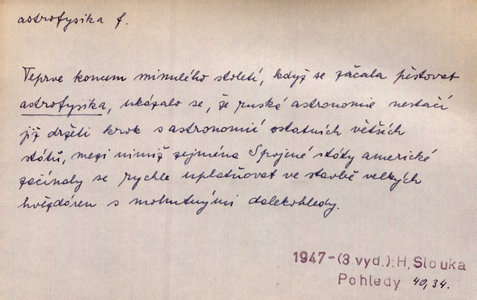 astrofysika f.
Teprve koncem minulého století, když se začala pěstovat
astrofysika, ukázalo se, že ruská astronomie nestačí
již držeti krok s astronomií ostatních větších
států, mezi nimiž zejména Spojené státy americké
začínaly se rychle uplatňovat ve stavbě velkých
hvězdáren s mohutnými dalekohledy.
1947-(3.vyd.): H, Slouka
Pohledy 40,34.